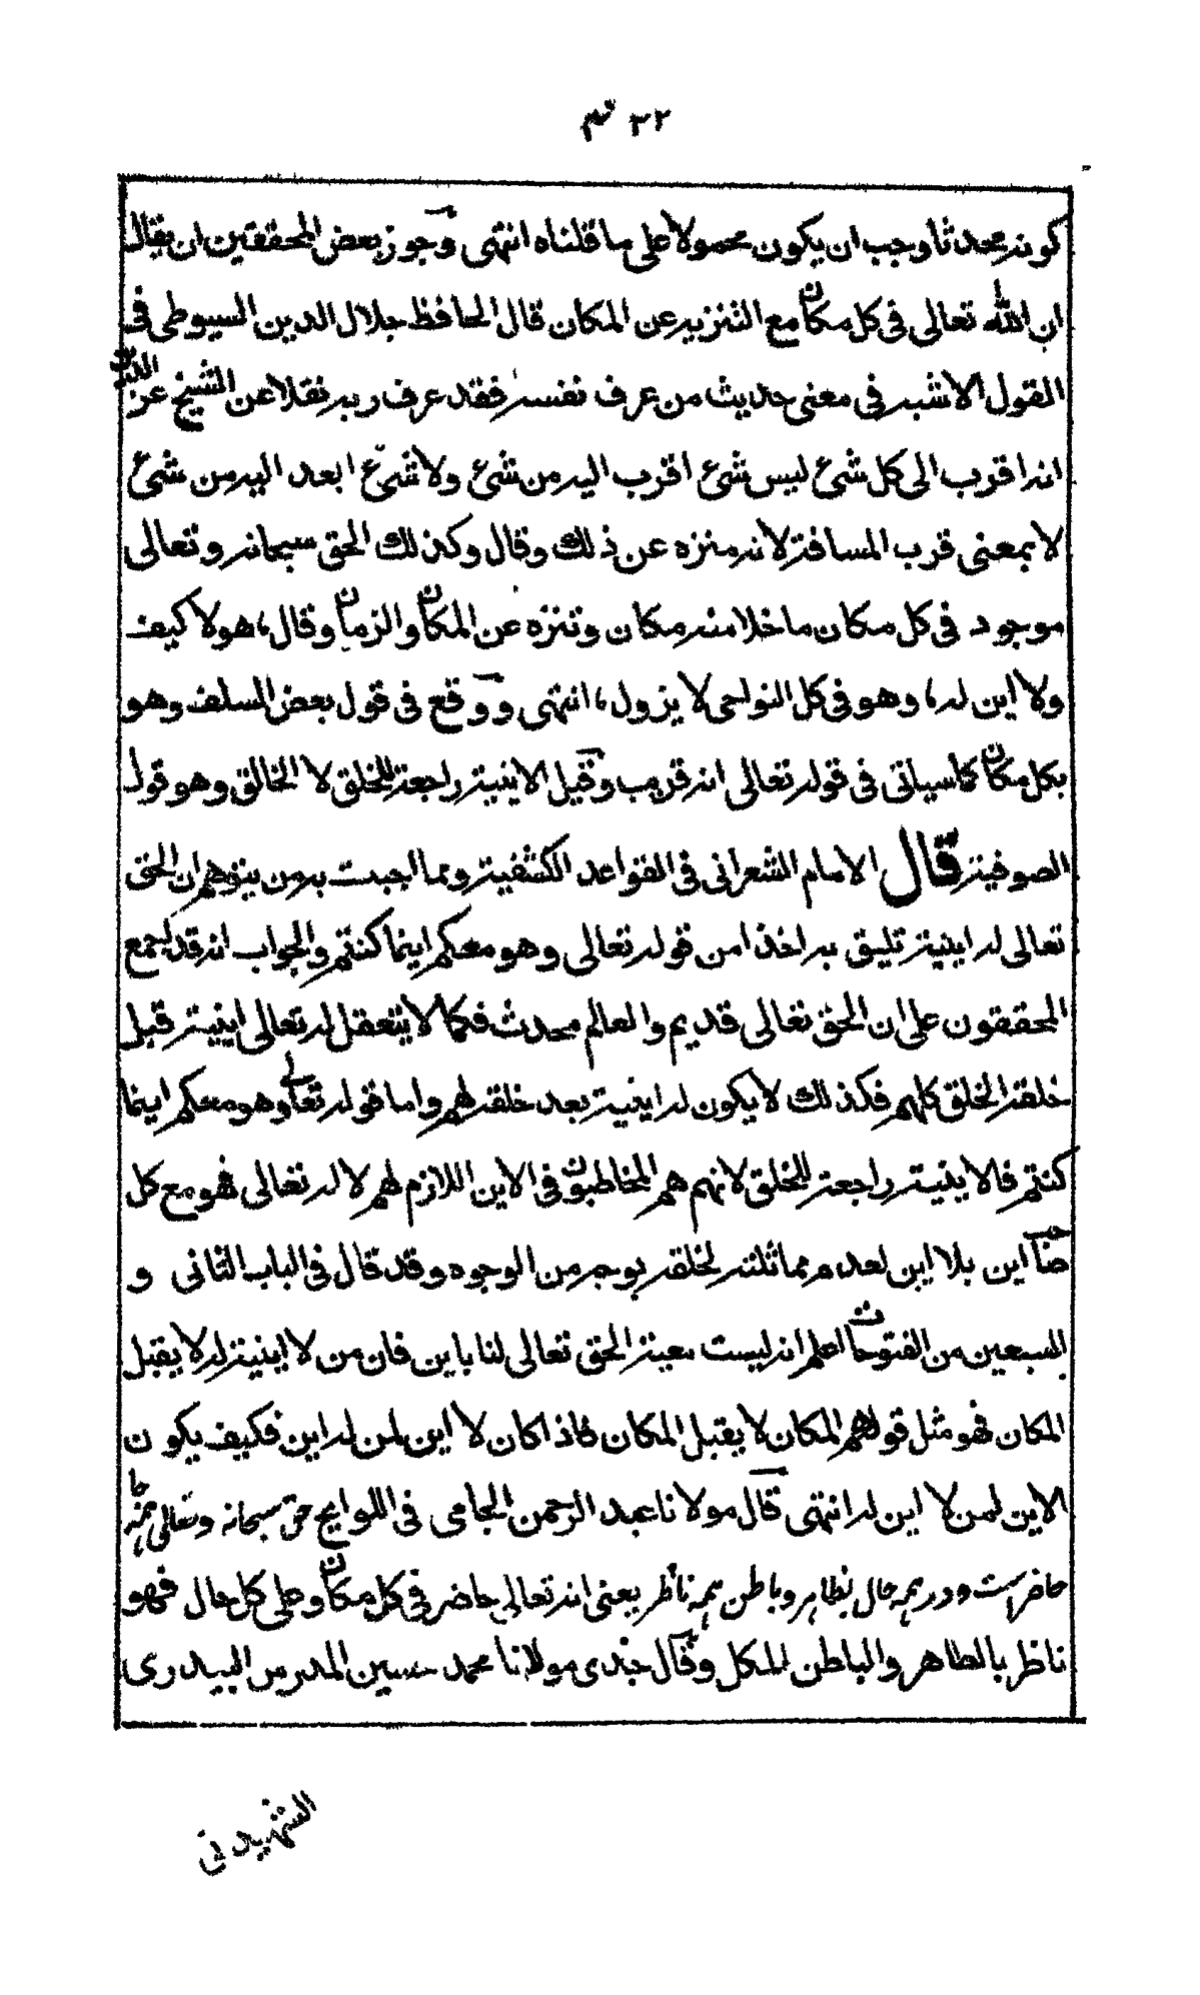 ٣٢ قم
كونه محدثا وجب ان يكون محمولا على ما قلناه انتهى وجوز بعض المحققين ان يقال
ان الله تعالى فى كل مكان مع التنزيه عن المكان قال الحافظ جلال الدين السيوطى فى
القول الاشبه فى معنى حديث من عرف نفسه فقد عرف ربه نقلا عن الشيخ عز الدين
انه اقرب الى كل شئ ليس شئ اقرب اليه من شئ ولا شئ ابعد اليه من شئ
لا بمعنى قرب المسافة لانه منزه عن ذلك وقال وكذلك الحق سبحانه وتعالى
موجود فى كل مكان ما خلا منه مكان وتنزه عن المكان والزمان وقال، هو لا كيف
ولا اين له، وهو فى كل النواحى لا يزول، انتهى ووقع فى قول بعض السلف وهو
بكل مكان كما سياتى فى قوله تعالى انه قريب وقيل الاينية راجعة للخلق لا الخالق وهو قول
الصوفية قال الامام الشعرانى فى القواعد الكشفية ومما اجبت به من يتوهم ان الحق
تعالى له اينية تليق به اخذا من قوله تعالى وهو معكم اينما كنتم والجواب انه قد اجمع
المحققون على ان الحق تعالى قديم والعالم محدث فكما لا يتعقل له تعالى اينية قبل
خلقه الخلق كلهم فكذلك لا يكون له اينية بعد خلقه لهم واما قوله تعالى وهو معكم اينما
كنتم فالاينية راجعة للخلق لانهم هم المخاطبون فى الاين اللازم لهم لا له تعالى فهو مع كل
صاحب اين بلا اين لعدم مماثلته لخلقه بوجه من الوجوه وقد قال فى الباب الثانى و
السبعين من الفتوحات اعلم انه ليست معية الحق تعالى لنا باين فان من لا اينية له لا يقبل
المكان فهو مثل قولهم المكان لا يقبل المكان فاذا كان لا اين لمن له اين فكيف يكون
الاين لمن لا اين له انتهى قال مولانا عبد الرحمن الجامى فى اللوايح حق سبحانه وتعالى همه جا
حاضرست ودر همه حال بظاهر وباطن همه ناظر يعنى انه تعالى حاضر فى كل مكان وعلى كل حال فهو
ناظر بالظاهر والباطن للكل وقال جدى مولانا محمد حسين المدرس البيدرى
الشهيد فى